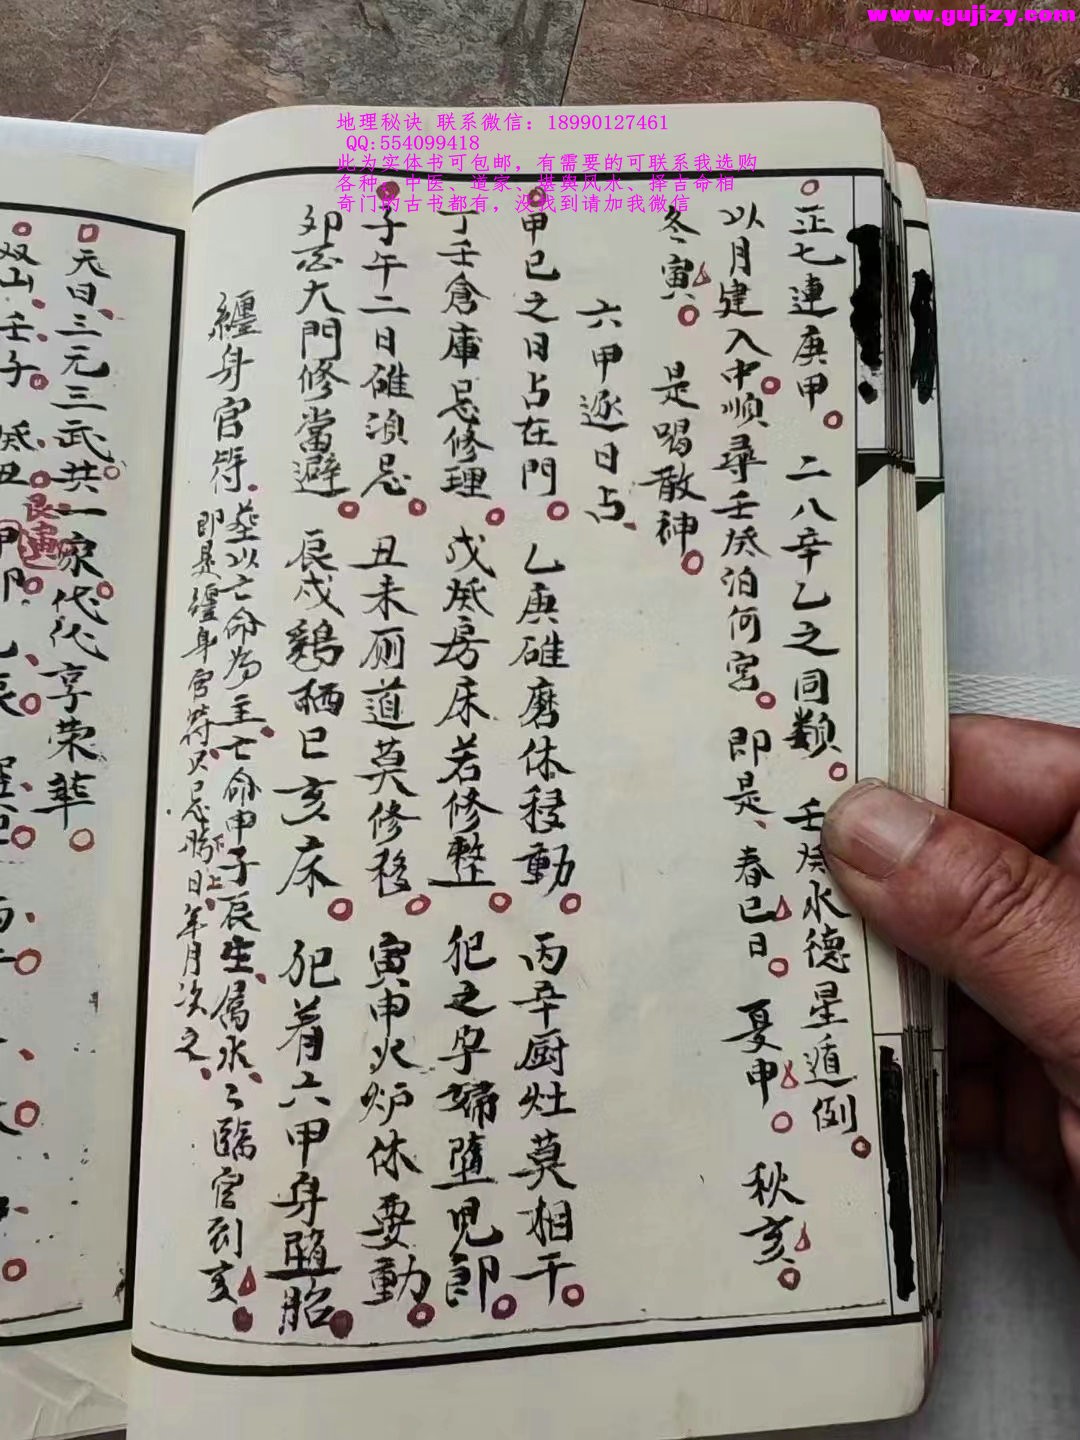 www.gujizy.com
地理秘诀 联系微信：18990127461
QQ:554099418
此为实体书可包邮，有需要的可联系我选购
各种，中医、道家、堪舆风水、择吉命相
奇门的古书都有，没找到请加我微信
正七連庚甲 二八辛乙之同類 壬癸水德星遁倒
以月建入中順尋壬癸泊何宮 即是 春巳日 夏申 秋亥
冬寅 是喝散神
六甲逐日占
甲巳之日占在門 乙庚碓磨休移動 丙辛厨灶莫相干
丁壬倉庫忌修理 戊癸房床若修整 犯之孕婦墮児郎
子午二日碓須忌 丑未厠道莫修移 寅申火炉休要動
卯酉大門修當避 辰戌鷄栖巳亥床 犯着六甲身隨胎
纏身官符 葬以亡命為主亡命申子辰生属水々臨官到亥
即是纏身官符只忌 日年月次之
元曰三元三武共一家代代享荣華
双山壬子 癸丑 艮寅 甲卯